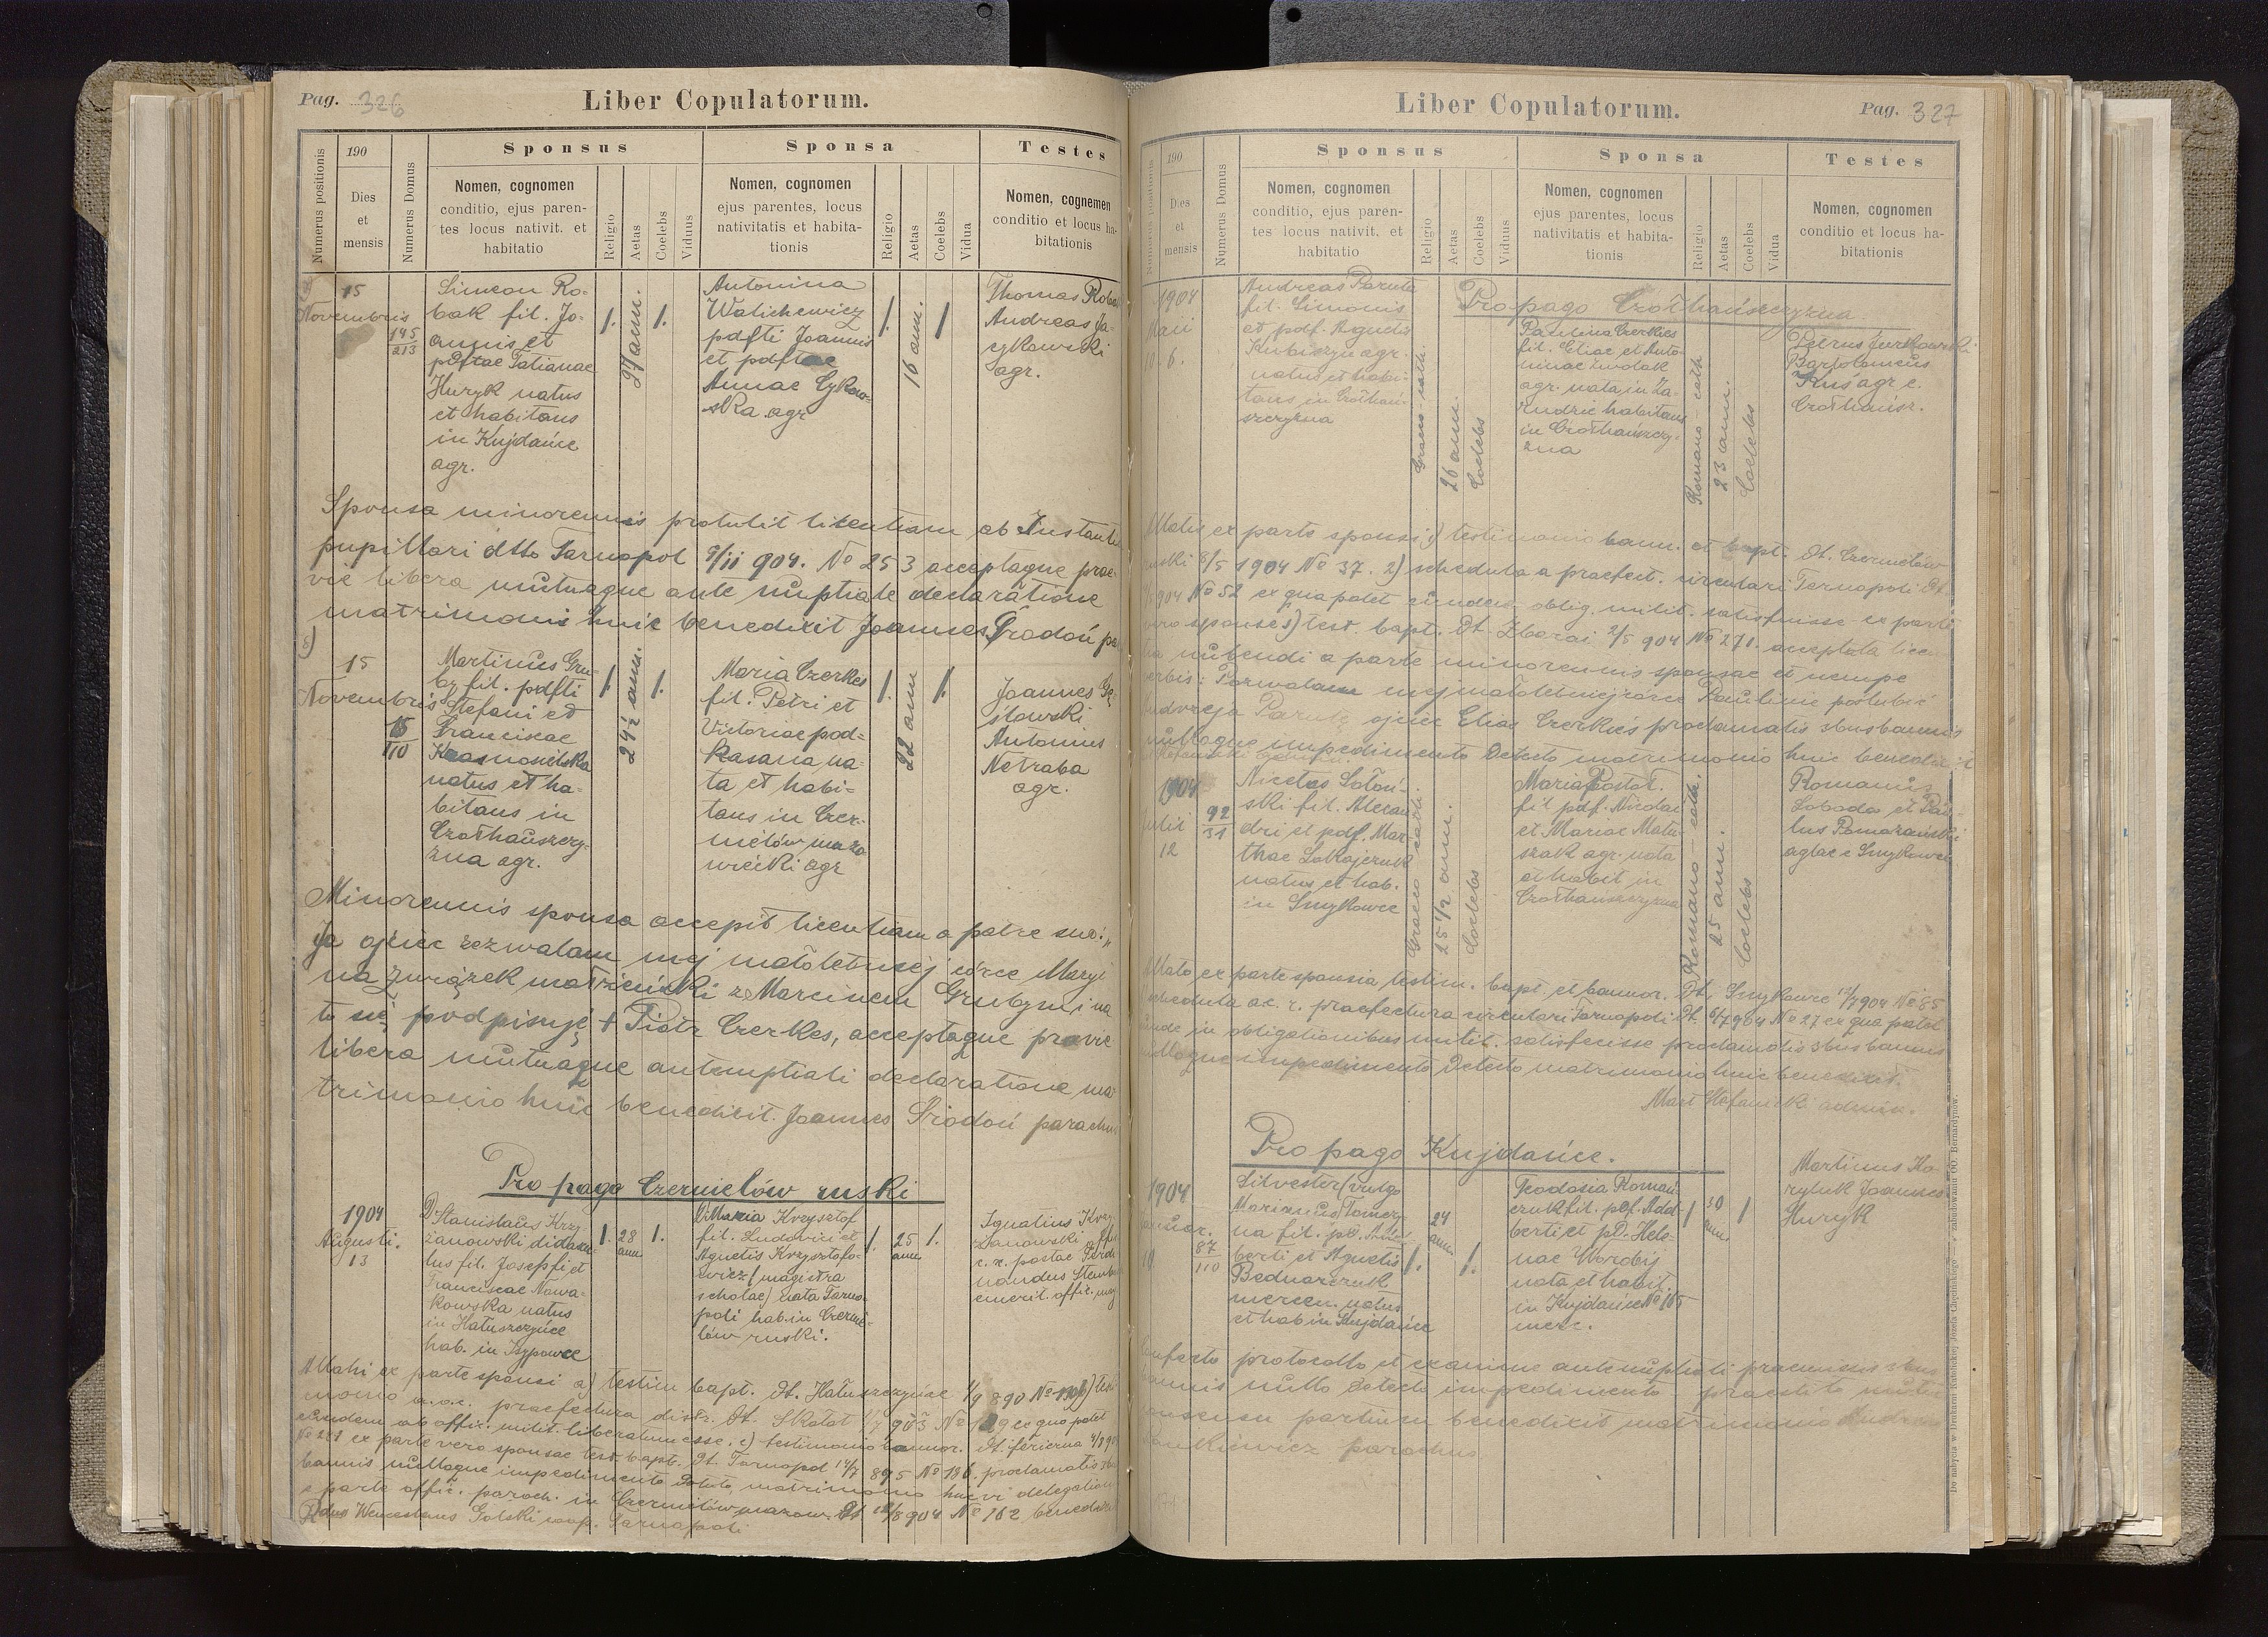 Pag. 326
Liber Copulatorum.
Numerus positionis
190
Dies
et
mensis
Numerus Domus
Sponsus
Nomen, cognomen
conditio, ejus paren-
tes locus nativit. et
habitatio
Religio
Aetas
Coelebs
Viduus
Sponsa
Nomen, cognomen
ejus parentes, locus
nativitatis et habita-
tionis
Religio
Aetas
Coelebs
Vidua
Testes
Nomen, cognomen
conditio et locus ha-
bitationis
15
Novembris
145
213
Simeon Ro-
bak fil. Jo-
annis et
pdftae Tatianae
Huryk natus
et habitans
in Kujdańce
agr.
1.
27 ann.
1.
Antonina
Walichewicz
pdfti Joannis
et pdftae
Annae Cykow-
ska agr
1.
16 ann.
1
Thomas Roba
Andreas Ja-
cykowski
agr.
Sponsa minorennis protulit licentiam ab Instantia
pupillari dtto Tarnopol 9/11 904. No 253 acceptaque prae-
vie libera mutuaque ante nuptiale declaratione
matrimonio huic benedixit Joannes Środoń pa
15
Novembris
15
110
Martinus Gru-
by fil. pdfti
Stefani et
Franciscae
Krasnosielska
natus et ha-
bitans in
Czołhańszczy-
zna agr.
1.
24½ ann.
1.
Maria Czerkes
fil. Petri et
Victoriae pod-
kasana na-
ta et habi-
tans in Czer-
nielów mazo
wiecki agr
1.
22 ann
1.
Joannes
sławski
Antonius
Netraba
agr.
Minorennis sponsa accepit licentiam a patre suo: „
Ja ojciec zezwalam mej małoletniej córce Maryi
na związek małżeński z Marcinem Grubym i na
to się podpisuję + Piotr Czerkes, acceptaque previe
libera mutuaque antenuptiali declaratione ma-
trimonio huic benedixit. Joannes Środoń parochus
Pro pago Czernielów ruski
1904
Augusti.
13
D. Stanislaus Krzy-
żanowski didasca-
lus fil. Josephi et
Franciscae Nowa-
kowska natus
in Hałuszczyńce
hab. in Iszpowce
1.
28
ann
1.
D. Maria Krzysztof
fil. Ludovici et
Agnetis Krzysztofo-
wicz (magistra
scholae) nata Tarno-
poli hab. in Czernie-
lów ruski.
1.
25
ann
1.
Ignatius Krzy
żanowski offi
c. r. postae Ferdi
nandus
emerit. offic.
Allati ex parte sponsi a) testim bapt. Dt. Hałuszczyńce 1/9 890 No b) testi
monio a. c. c. praefectura distr. Dt. Skałat 903 No ex quo patet
eundem ab offic. milit. liberatum esse. c) testimonio bannor. Dt. 4/8 90
No 281 ex parte vero sponsae test bapt. Dt. Tarnopol 14/7 895 No 186. proclamatis
bannis nulloque impedimento detecto, matrimonio huic vi delegationis
e parte offic. paroch. in Czernielów mazow. Dt 12/8 904 No 162 benedixit
Rdus Wenceslaus Golski coop. Tarnopoli
Liber Copulatorum.
Pag. 327
Numerus positionis
190
Dies
et
mensis
Numerus Domus
Sponsus
Nomen, cognomen
conditio, ejus paren-
tes locus nativit. et
habitatio
Religio
Aetas
Coelebs
Viduus
Sponsa
Nomen, cognomen
ejus parentes, locus
nativitatis et habita-
tionis
Religio
Aetas
Coelebs
Vidua
Testes
Nomen, cognomen
conditio et locus ha-
bitationis
Pro pago Czołhańszczyzna
1904
Maii
6.
Andreas Paruta
fil. Simonis
et pdf. Agnetis
Kubiszyn agr.
natus et habi-
tans in Czołhań-
szczyzna
Graeco-cath.
26 ann.
Coelebs
Paulina Czerkies
fil. Eliae et Anto-
ninae Żwolak
agr. nata in Za-
rudzie habitans
in Czołhańszczy-
zna
Romano-cath.
23 ann.
Coelebs
Petrus Jurkowski
Bartolomeus
Kuś agr. e.
Czołhańsz.
Allatis ex parte sponsi 1) testimonio bann. et bapt. Dt. Czernielów
ruski 8/5 1904 No 37. 2) scheduła a praefect. circulari Tarnopoli Dt.
904 No 52 ex qua patet eundem oblig. milit. satisfuisse ex parte
vero sponsae 1) test. bapt. Dt Zbaraż 2/5 904 No 271. acceptata licen
tia nubendi a parte minorennis sponsae et nempe
verbis: Pozwalam mej małoletniej córce Paulinie poślubić
Andrzeja Parutę ojciec Elias Czerkies proclamatis 3bus bannis
nulloque impedimento detecto matrimonio huic benedixit
1904
Julii
12
92
31
Nicetas Łotoń-
ski fil. Alexan
dri et pdf. Mar-
thae Łokajczuk
natus et hab.
in Smykowce
Graeco cath
25 1/2 ann.
Coelebs
Maria Postoł.
fil pdf. Nicolai
et Mariae Matu
szak agr. nata
et habit in
Czołhańszczyzna
Romano-cath.
25 ann.
Coelebs
Romanus
Łoboda et Pau-
lus Pomazański
aglae e Smykowce
Allato ex parte sponsi a testim. bapt. et bannor. Dt. Smykowce 12/7 904 No 85
scheduła a c. r. praefectura circulari Tarnopoli Dt. 6/7 904 No 27 ex qua patet
unde in obligationibus milit. satisfecisse proclamatis 3bus bannis
nulloque impedimento detecto matrimonio huic benedixit.
Mart admin.
Pro pago Kujdańce.
1904.
Januar.
10
87
110
Silvester (vulgo
Marianus) Tomczy
na fil. pd. Adal
berti et Agnetis
Bednarczuk
mercen. natus
et hab in Kujdańce
1.
24
ann.
1.
Teodosia Romań
czuk fil. pdf. Adal
berti et pD. Hele-
nae Worobij
nata et habit
in Kujdańce No 105
merc.
1
30
ann.
1
Martinus Ko
ryluk Joannes
Huryk
Confecto protocollo et examine antenuptiali praemissis 3bus
bannis nullo detecto impedimento praestito mutuo
consensu partium benedixit matrimonio Andreas
parochus
Do nabycia w Drukarni Katolickiej Józefa Chęcińskiego — w zabudowaniu OO. Bernardynów.